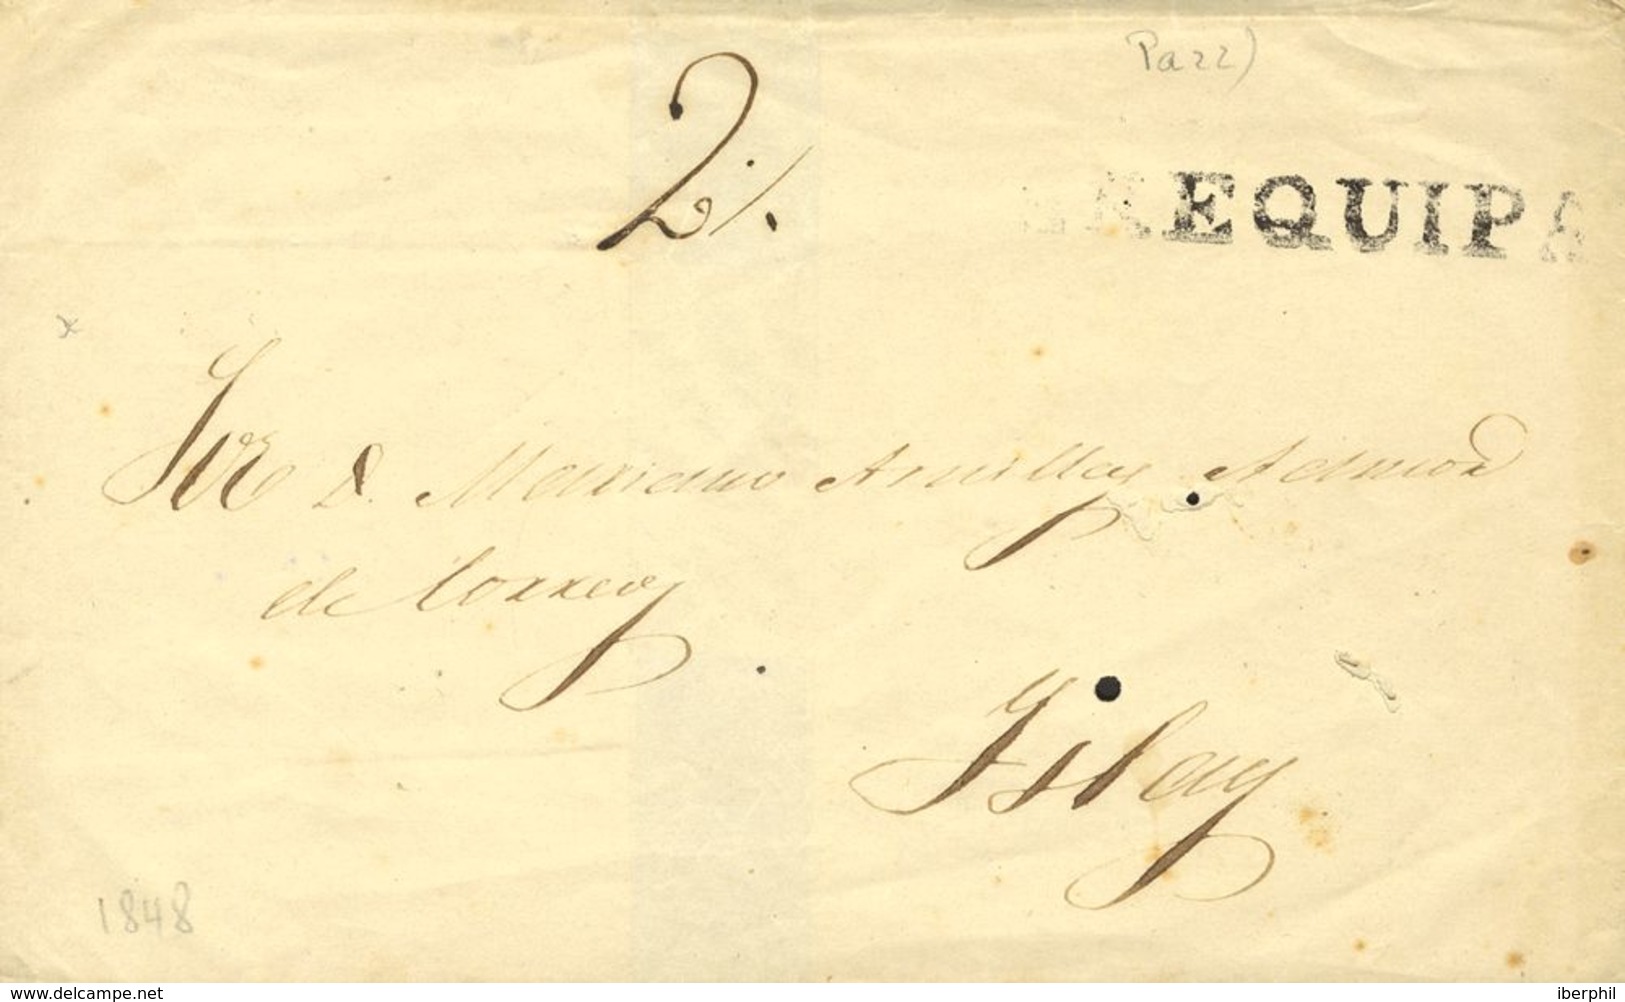 Pazz)
2
AREQUIPA
Sor D. Mariano Arnillas Admor
de Correos
Yslay
1848
www.delcampe.net
iberphil